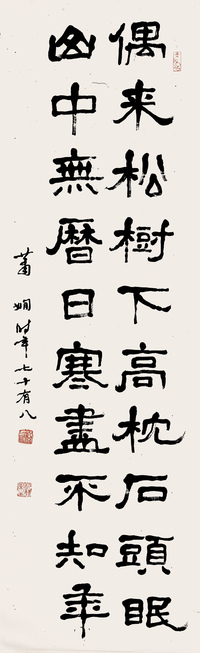 偶来松樹下高枕石頭眠
山中無曆日寒盡不知年
蕭嫻时年七十有八